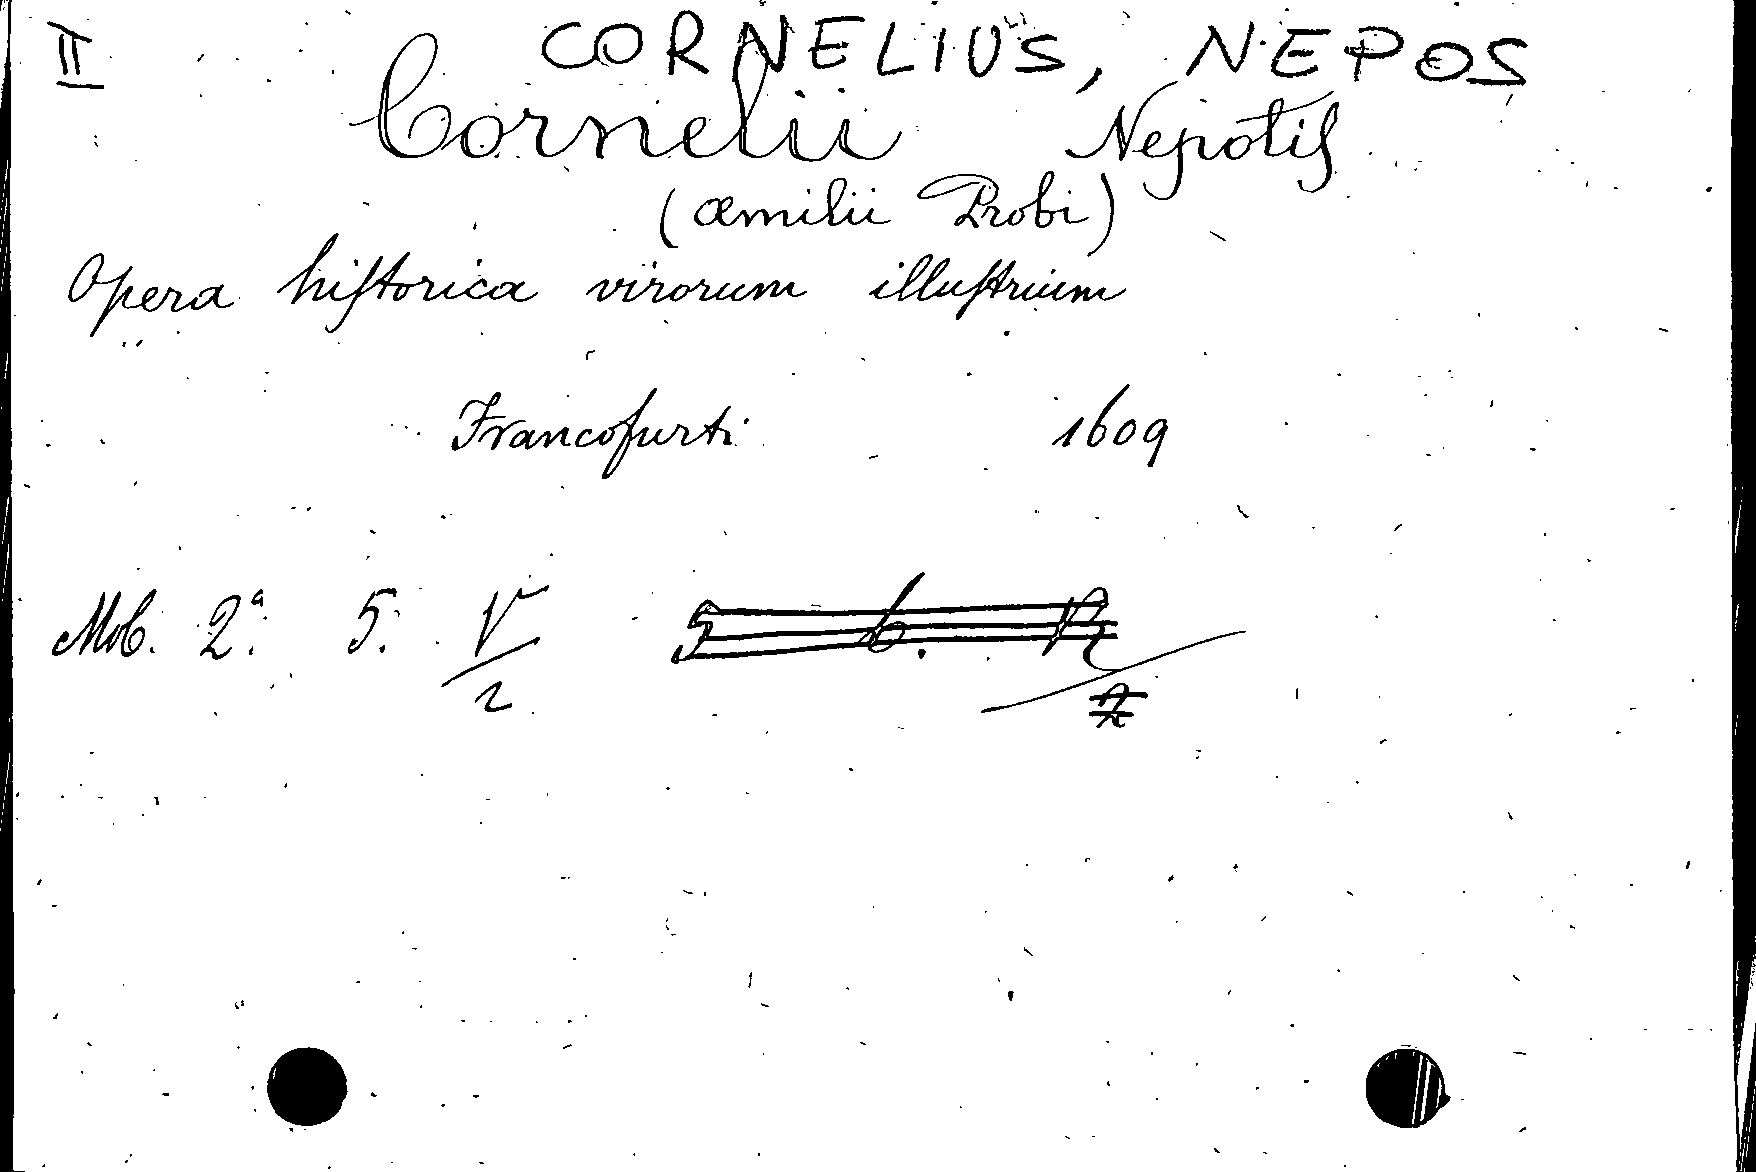 II CORNELIUS, NEPOS
Cornelii Nepotis
(Æmilii Probi)
Opera historica virorum illustrium
Francofurti 1609
Mob. 2ª. 5. V/2